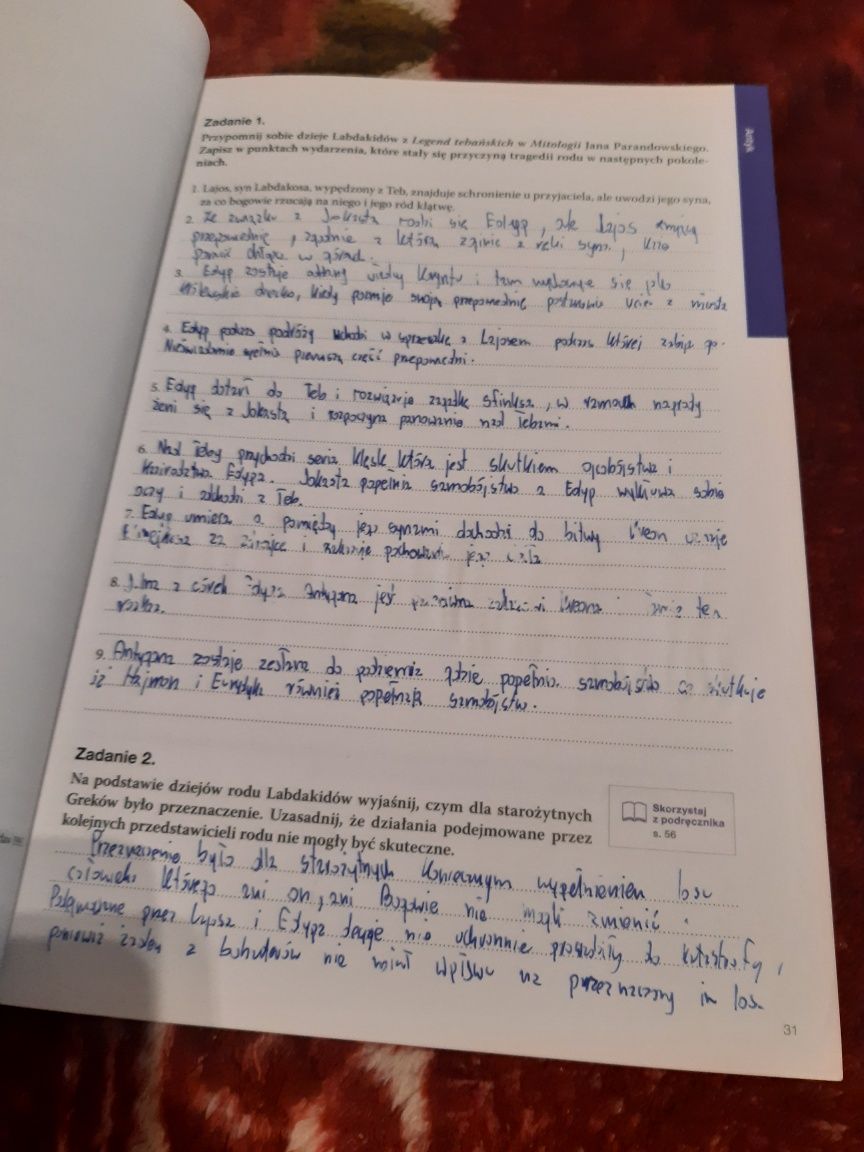 Antyk
Zadanie 1.
Przypomnij sobie dzieje Labdakidów z Legend tebańskich w Mitologii Jana Parandowskiego.
Zapisz w punktach wydarzenia, które stały się przyczyną tragedii rodu w następnych pokole-
niach.
1. Lajos, syn Labdakosa, wypędzony z Teb, znajduje schronienie u przyjaciela, ale uwodzi jego syna,
za co bogowie rzucają na niego i jego ród klątwę.
2. Ze związku z Jokastą rodzi się Edyp, ale Lajos
przepowiednię, zgodnie z którą zginie z ręki syna,
porzucić chłopca w górach.
3. Edyp zostaje oddany władcy Koryntu i tam wychowuje się jako
dziecko, kiedy poznaje swoją przepowiednię postanawia uciec z miasta
4. Edyp podczas podróży wchodzi w sprzeczkę z Lajosem podczas której zabija go.
Nieświadomie spełnia pierwszą część przepowiedni.
5. Edyp dotarł do Teb i rozwiązuje zagadkę sfinksa, w ramach nagrody
żeni się z Jokastą i rozpoczyna panowanie nad Tebami.
6. Nad Teby przychodzi seria klęsk która jest skutkiem ojcobójstwa i
kazirodztwa Edypa. Jokasta popełnia samobójstwo a Edyp wykłuwa sobie
oczy i odchodzi z Teb.
7. Edyp umiera a pomiędzy jego synami dochodzi do bitwy Kreon uznaje
za zdrajcę i zakazuje pochowania jego ciała
8. Jedna z córek Edypa Antygona jest Kreona i łamie ten
rozkaz.
9. Antygona zostaje zesłana do podziemia gdzie popełnia samobójstwo co skutkuje
iż Hajmon i Eurydyka również popełniają samobójstwo.
Zadanie 2.
Na podstawie dziejów rodu Labdakidów wyjaśnij, czym dla starożytnych
Greków było przeznaczenie. Uzasadnij, że działania podejmowane przez
kolejnych przedstawicieli rodu nie mogły być skuteczne.
Skorzystaj
z podręcznika
s. 56
Przeznaczenie było dla starożytnych koniecznym wypełnieniem losu
człowieka którego ani on, ani Bogowie nie mogli zmienić.
przez Lajosa i Edypa decyzje nieuchronnie prowadziły do katastrofy,
ponieważ żaden z bohaterów nie miał wpływu na przeznaczony im los.
31